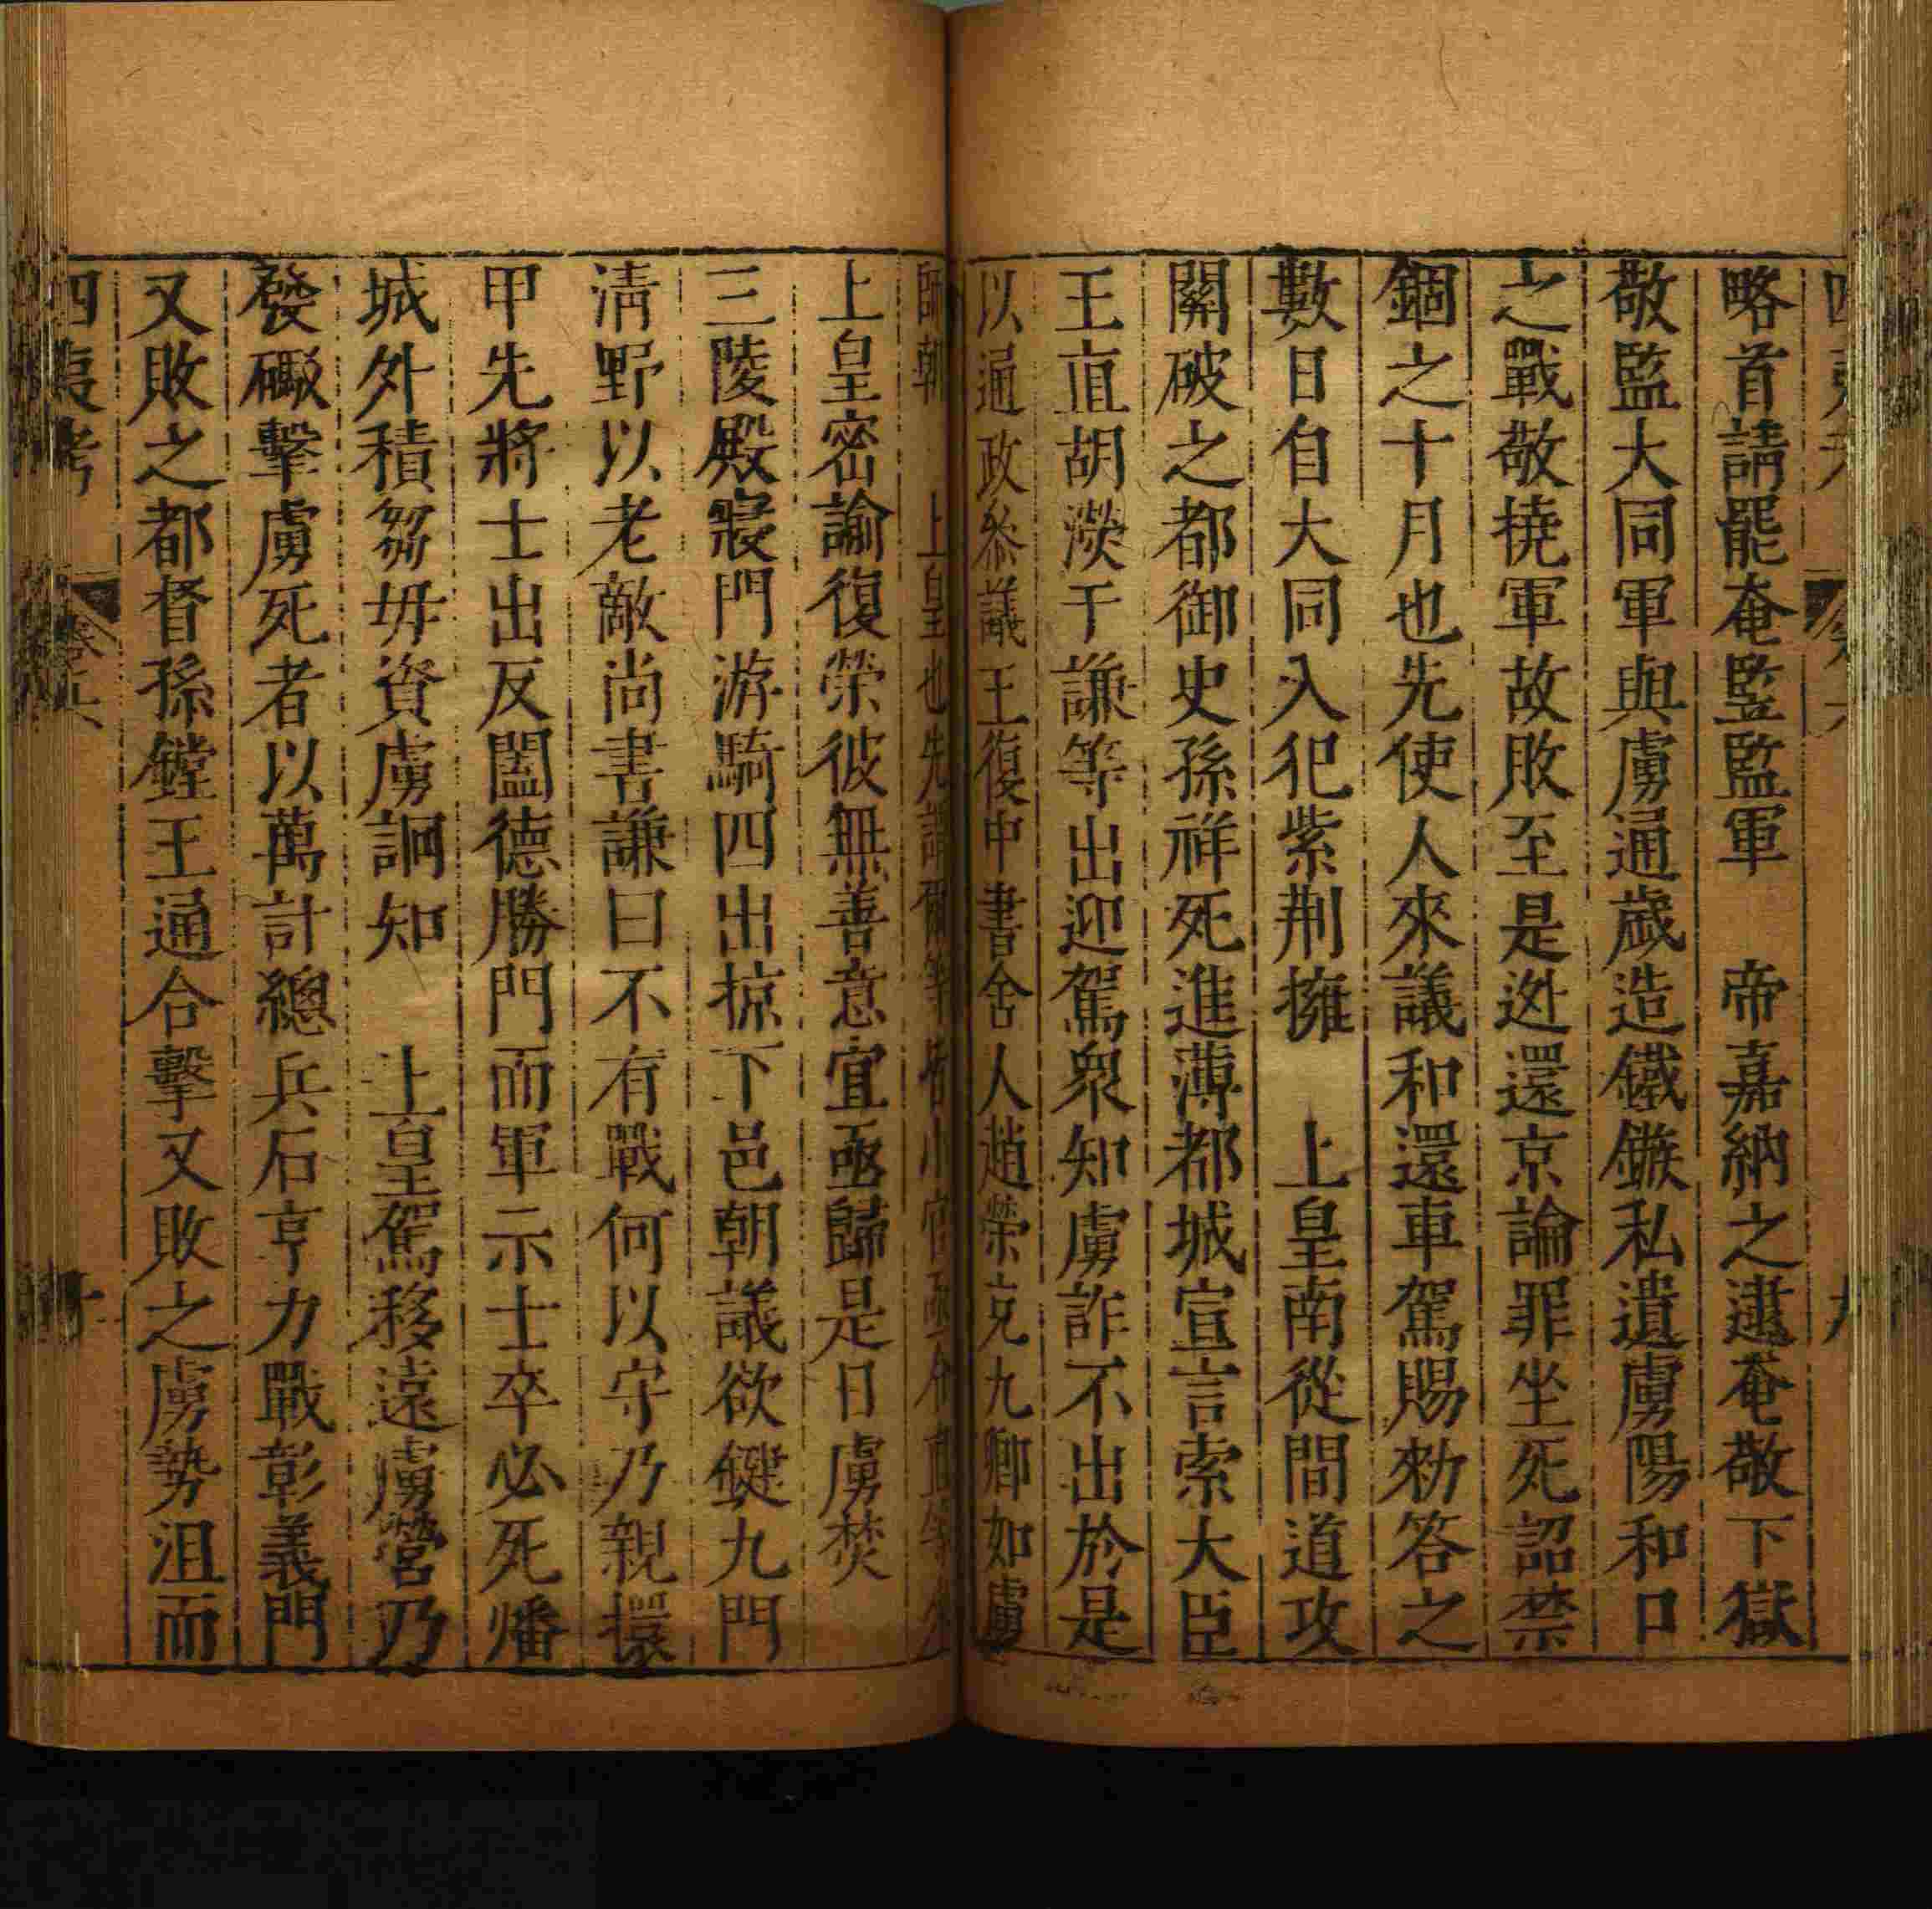 略首請罷奄監監軍　帝嘉納之逮奄敬下獄
敬監大同軍與虜通歲造鐵鏃私遺虜陽和口
之戰敬撓軍故敗至是逃還京論罪坐死詔禁
錮之十月也先使人來議和還車駕賜勑答之
數日自大同入犯紫荆擁　上皇南從間道攻
關破之都御史孫祥死進薄都城宣言索大臣
王直胡濙于謙等出迎駕衆知虜詐不出於是
以通政叅議王復中書舍人趙榮充九卿如虜
師朝　上皇也先謂爾等皆小官亟令直等來
上皇密諭復榮彼無善意宜亟歸是日虜焚
三陵殿寢門游騎四出掠下邑朝議欲鍵九門
淸野以老敵尚書謙曰不有戰何以守乃親擐
甲先將士出反闔德勝門而軍示士卒必死燔
城外積芻毋資虜詗知　上皇駕移遠虜營乃
發礮擊虜死者以萬計總兵石亨力戰彰義門
又敗之都督孫鏜王通合擊又敗之虜勢沮而
四夷考　卷六　十